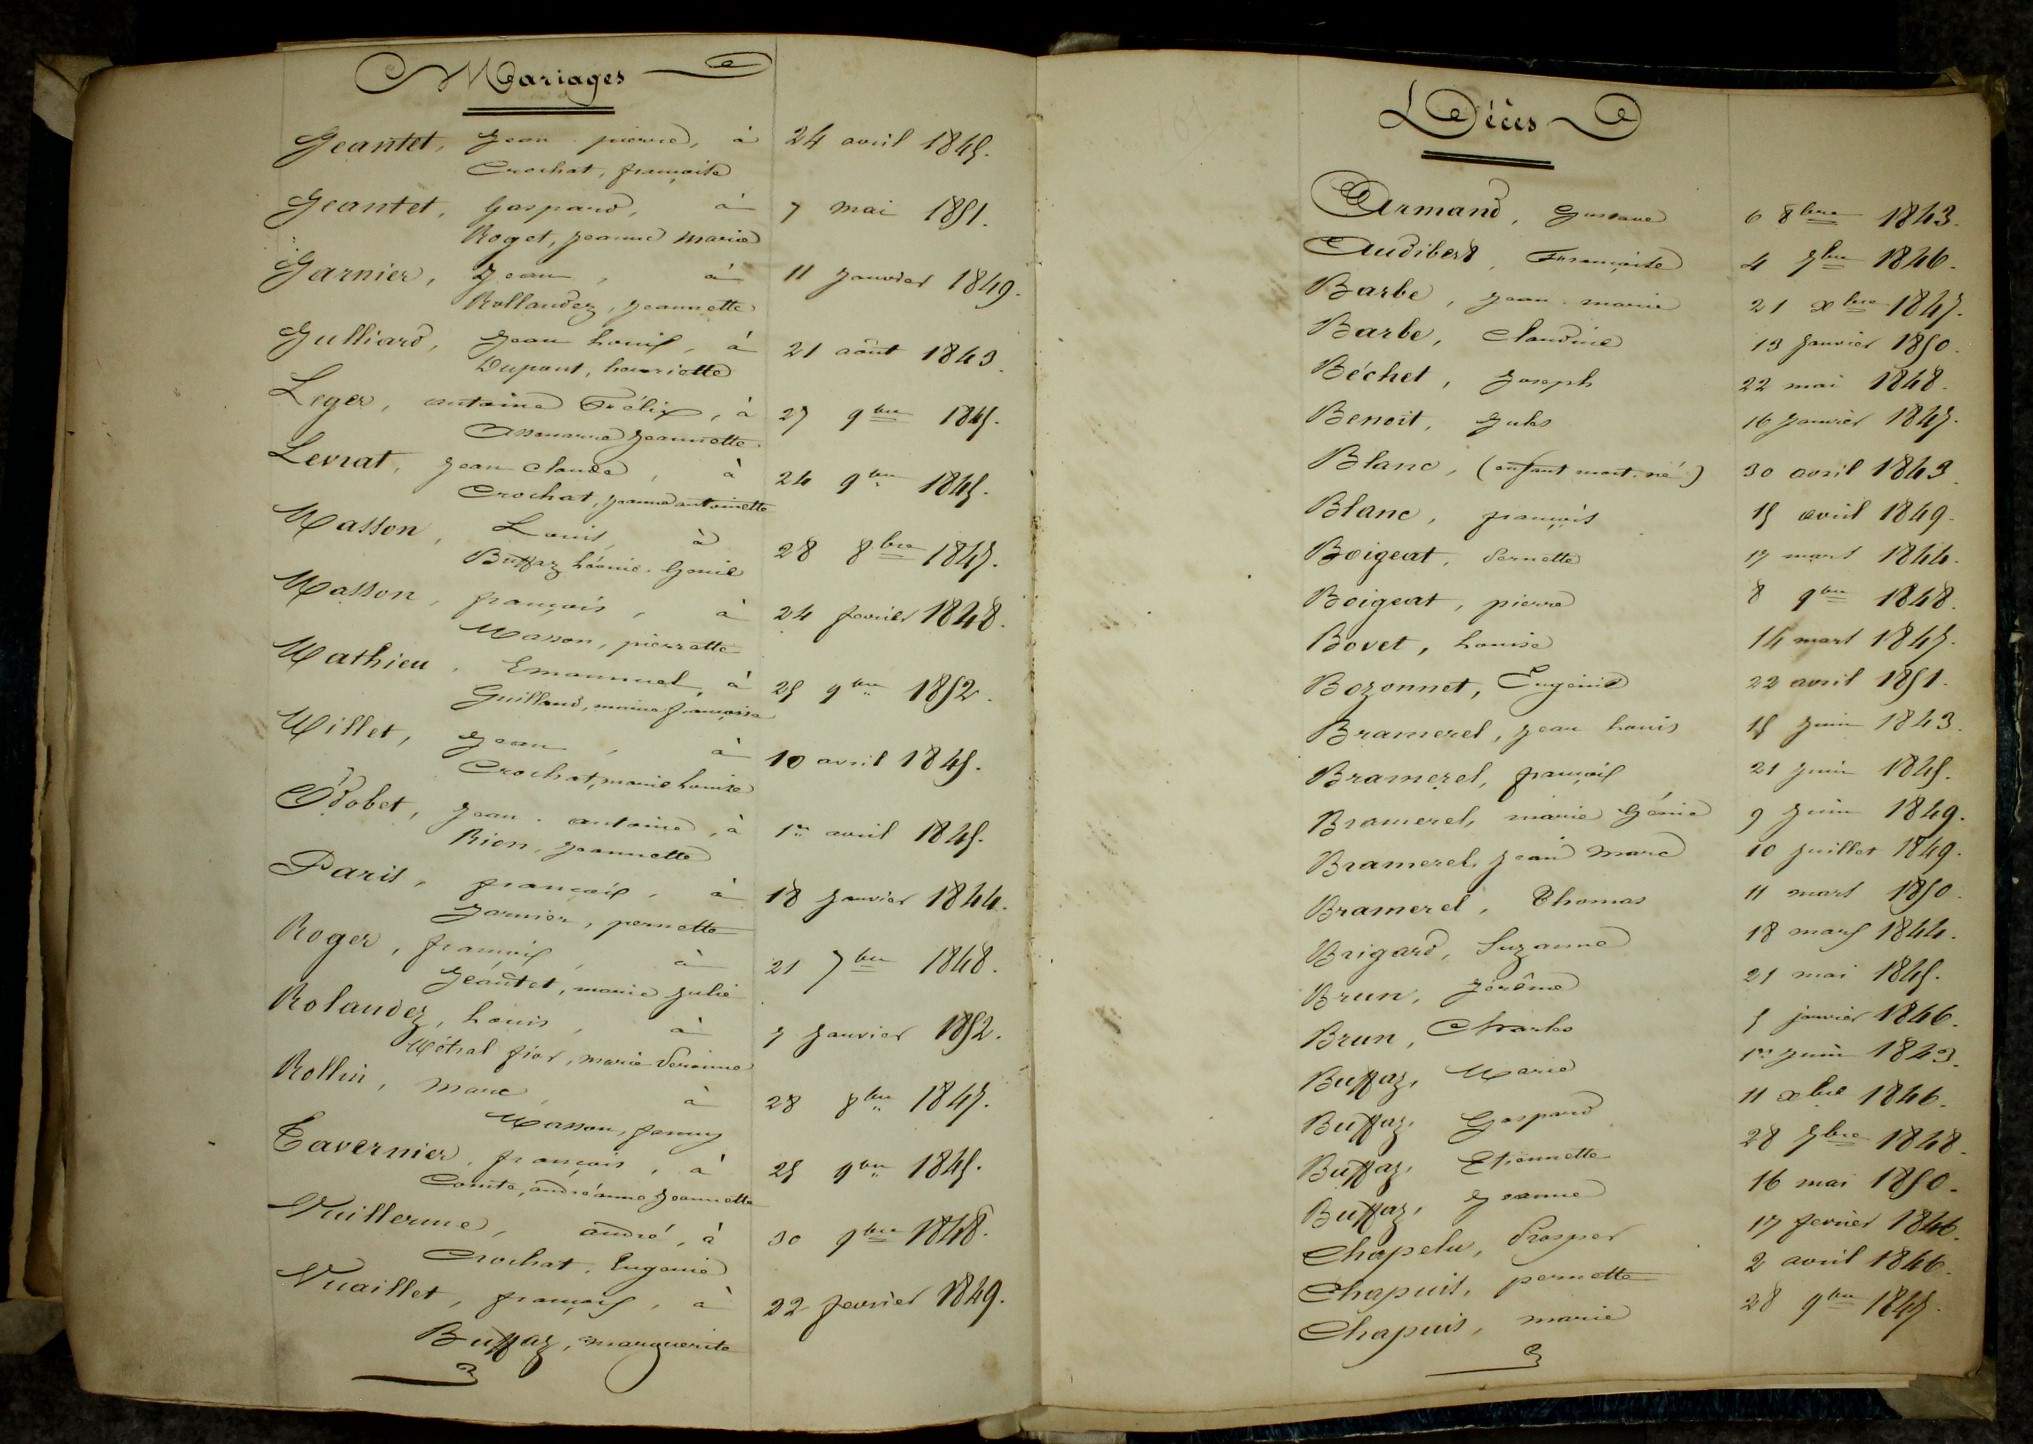 Mariages
Geantet, Jean pierre, à 24 avril 1845.
Crochat, françoise
Geantet, Gaspard, à 7 mai 1851.
Roget, Jeanne Marie
Garnier, Jean, à 11 Janvier 1849.
Rollandez, Jeannette
Gulliard, Jean Louis, à 21 août 1843.
Dupont, henriette
Leger, antoine Félix, à 27 9bre 1845.
Jeannette
Levrat, Jean Claude, à 24 9bre 1845.
Crochat, Jeanne antoinette
Masson, Louis, à 28 8bre 1847.
Buffaz
Masson, françois, à 24 fevrier 1848.
Masson, pierrette
Mathieu, Emannuel, à 25 9bre 1852.
Guilland, marie françoise
Millet, Jean, à 10 avril 1845.
Crochat, marie Louise
Odobet, Jean antoine, à 1er avril 1845.
Rion, Jeannette
Paris, françois, à 18 Janvier 1844.
Garnier, pernette
Roger, françois, à 21 7bre 1848.
Géantet, marie Julie
Rolandez, Louis, à 7 Janvier 1852.
Métral fior, marie
Rollin, Marc à 28 8bre 1847.
Masson, fanny
Tavernier, françois, à 25 9bre 1845.
Comte, andréanne Jeannette
Vuillerme, andré, à 30 9bre 1848.
Crochat, Eugenie
Vuaillet, françois, à 22 fevrier 1849.
Buffaz, marguerite
Décès
Armand, Gustave 6 8bre 1843.
Audibert, Françoise 4 7bre 1846.
Barbe, Jean marie 21 xbre 1847.
Barbe, Claudine 13 Janvier 1850.
Béchet, Joseph 22 mai 1848.
Benoit, Jules 16 Janvier 1847.
Blanc, (enfant mort-né) 30 avril 1843.
Blanc, françois 15 avril 1849.
Boigeat, Pernette 17 mars 1844.
Boigeat, pierre 8 9bre 1848.
Bovet, Louise 14 mars 1847.
Bozonnet, Eugénie 22 avril 1851.
Bramerel, Jean Louis 15 Juin 1843.
Bramerel, françois 21 Juin 1845.
Bramerel, marie Génie 9 Juin 1849.
Bramerel, Jean Marc 10 Juillet 1849.
Bramerel, Thomas 11 mars 1850.
Brigard, Suzanne 18 mars 1844.
Brun, Jérôme 21 mai 1845.
Brun, Charles 5 janvier 1846.
Buffaz, Marie 1er Juin 1843.
Buffaz, Gaspard 11 xbre 1846.
Buffaz, Etiennette 28 7bre 1848.
Buffaz, Jeanne 16 mai 1850.
Chapelu, Prosper 17 fevrier 1846.
Chapuis, pernette 2 avril 1846.
Chapuis, marie 28 9bre 1847.